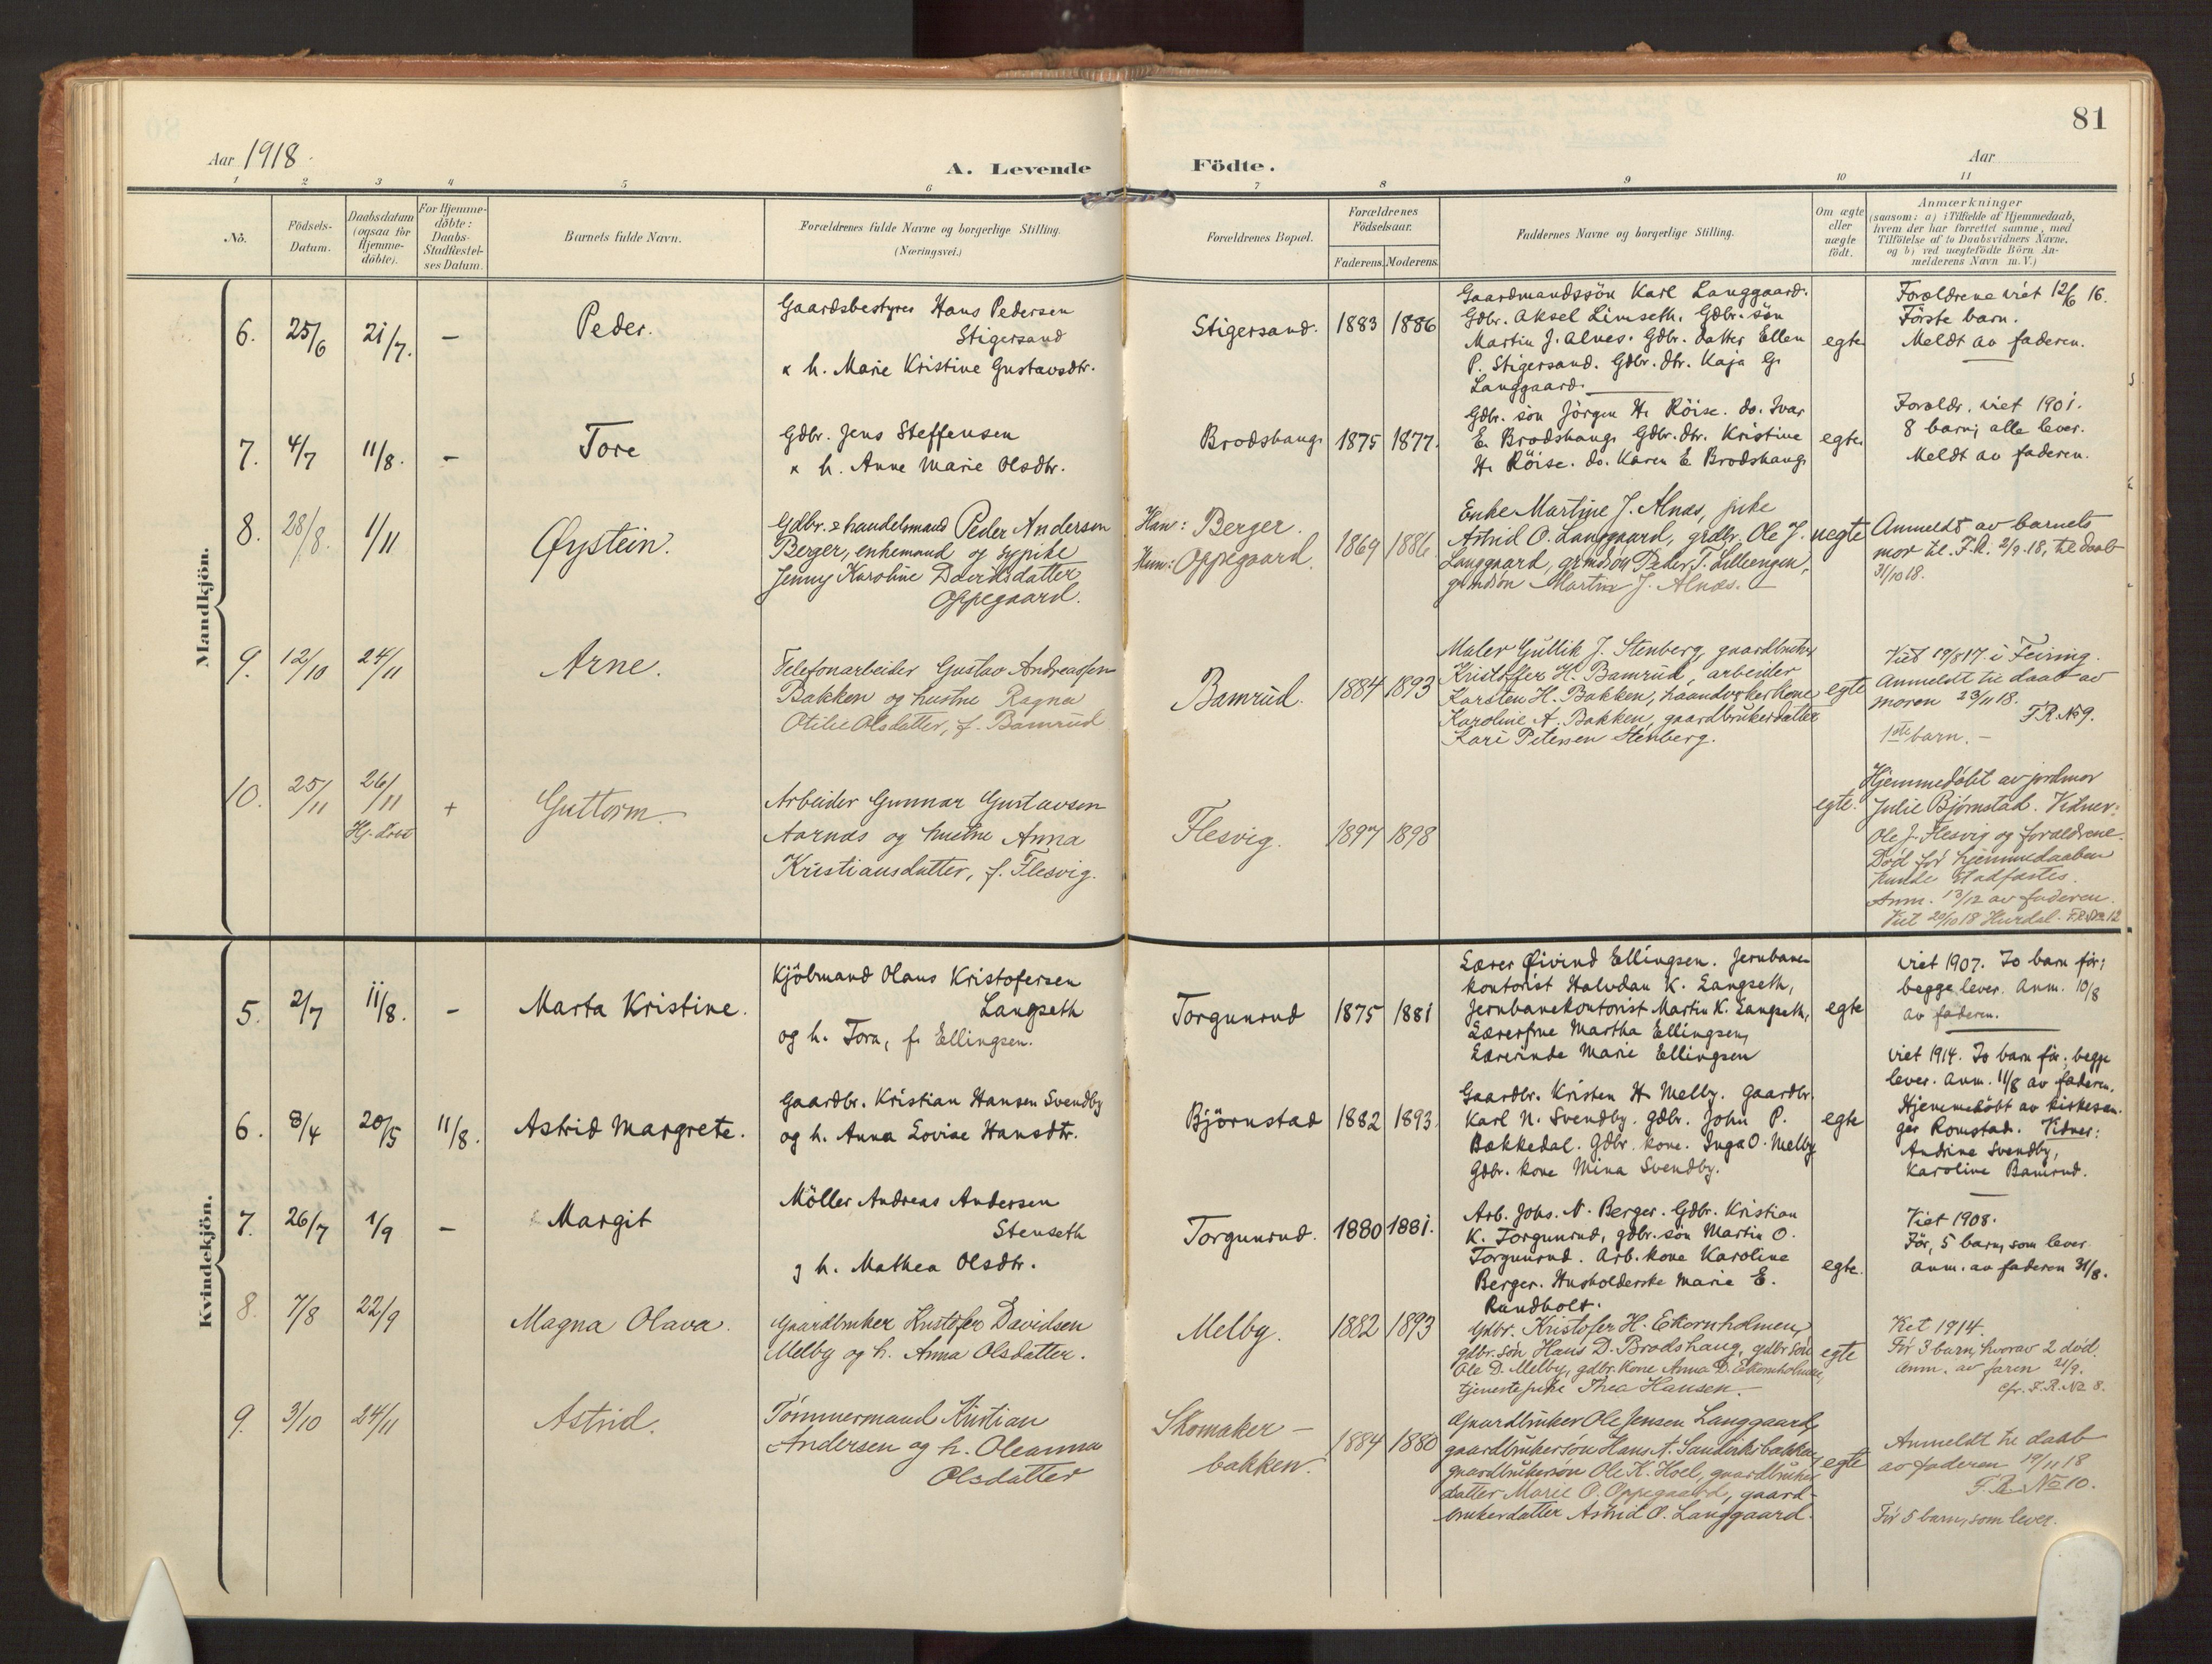 81
Aar 1918.
A. Levende Födte.
Aar
1 2 3 4 5 6 7 8 9 10 11
No.
Födsels-
Datum.
Daabsdatum
(ogsaa for
Hjemme-
döbte).
For Hjemme-
döbte:
Daabs-
Stadfæstel-
ses Datum.
Barnets fulde Navn.
Forældrenes fulde Navne og borgerlige Stilling.
(Næringsvei.)
Forældrenes Bopæl.
Forældrenes
Födselsaar.
Faderens. Moderens.
Faddernes Navne og borgerlige Stilling.
Om ægte
eller
uægte
födt.
Anmærkninger
(saasom: a) i Tilfælde af Hjemmedaab,
hvem der har forrettet samme, med
Tilföielse af to Daabsvidners Navne,
og b) ved uægtefödte Börn An-
melderens Navn m. V.)
Mandkjön.
6. 25/6 21/7. — Peder.
Gaardsbestyrer Hans Pedersen
Stigersand
& h. Marie Kristine Gustavsdtr.
Stigersand. 1883 1886
Gaardmandssön Karl Langgaard.
Gdbr. Aksel Limseth. Gdbr. sön
Martin J. Alnes. Gdbr. datter Ellen
P. Stigersand. Gdbr. dtr. Kaja G.
Langgaard.
egte
Forældrene viet 12/6 16.
Förste barn.
Meldt av faderen.
7. 4/7 11/8. — Tore
Gdbr. Jens Steffensen
& h. Anne Marie Olsdtr.
Brodshaug 1875 1877.
Gdbr. sön Jörgen H. Röise. do. Ivar
E. Brodshaug. Gdbr. dtr. Kristine
H. Röise. do. Karen E. Brodshaug
egte
Foreldr. viet 1901.
8 barn; alle lever.
Meldt av faderen.
8. 28/8. 1/11 Øystein.
Gdbr. & handelsmand Peder Andersen
Berger, enkemand og sypike
Jenny Karoline Davidsdatter
Oppegaard.
Han: Berger.
Hun: Oppegaard.
1869 1886
Enke Martine J. Alnæs, pike
Astrid O. Langgaard, grdbr. Ole J.
Langgaard, grmdsøn Peder T. Lillengen,
grmdsøn Martin J. Alnæs.
uegte
Anmeldt av barnets
mor til F.R. 2/9 18, til daab
31/10 18.
9. 12/10 24/11 Arne.
Telefonarbeider Gustav Andreassen
Bakken og hustru Ragna
Otilie Olsdatter, f. Bamrud
Bamrud. 1884 1893
Maler Gullik J. Stenberg, gaardbruker
Kristoffer H. Bamrud, arbeider
Karsten H. Bakken, haandverkerkone
Karoline A. Bakken, gaardbrukerdatter
Kari Petersen Stenberg.
egte
Viet 19/8 17 i Feiring.
Anmeldt til daab av
moren 23/11 18.
F.R. No 9.
1ste barn. —
10. 25/11 26/11
Hj. døbt
+ Guttorm.
Arbeider Gunnar Gustavsen
Aarnæs og hustru Anna
Kristiansdatter, f. Flesvig.
Flesvig. 1897 1898
egte.
Hjemmedøbt av jordmor
Julie Bjørnstad. Vidner:
Ole J. Flesvig og forældrene.
Død før hjemmedaaben
kunde stadfæstes.
Anm. 13/12 av faderen.
Viet 20/10 18 Hurdal. F.R. No 12
Kvindekjön.
5. 2/7 11/8. — Marta Kristine.
Kjölmand Olaus Kristofersen
Langseth
og h. Tora, f. Ellingsen.
Torgunrud 1875 1881
Lærer Öivind Ellingsen. Jernbane-
kontorist Halvdan K. Langseth,
Jernbanekontorist Martin K. Langseth,
Lærerfrue Martha Ellingsen,
Lærerinde Marie Ellingsen
egte
viet 1907. To barn för;
begge lever. Anm. 10/8
av faderen.
6. 8/4 20/5 11/8. Astrid Margrete.
Gaardbr. Kristian Hansen Svendby
og h. Anna Lovise Hansdtr.
Björnstad 1882 1893.
Gaardbr. Kristen H. Melby. Gaardbr.
Karl N. Svendby. Gdbr. John P.
Bækkedal. Gdbr. kone. Inga O. Melby
Gdbr. kone Mina Svendby.
egte
viet 1914. To barn för; begge
lever. Anm. 11/8 av faderen.
Hjemmedöbt av kirkesan-
ger Romstad. Vidner:
Andrine Svendby,
Karoline Bamrud.
7. 26/7 1/9 — Margit
Möller Andreas Andersen
Stenseth
og h. Mathea Olsdtr.
Torgunrud. 1880 1881.
Arb. Johs. N. Berger. Gdbr. Kristian
K. Torgunrud, gdbr. sön Martin O.
Torgunrud. Arb. kone Karoline
Berger. Husholderske Marie E.
Rundholt.
egte.
Viet 1908.
För, 5 barn, som lever.
Anm. av faderen 31/8.
8. 7/8 22/9 Magna Olava.
Gaardbruker Kristofer Davidsen
Melby og h. Anna Olsdatter.
Melby. 1882 1893
Gdbr. Kristofer H. Ekornholmen,
gdbr. søn Hans D. Brodshaug, gdbr. søn
Ole D. Melby, gdbr. kone Anna D. Ekornholmen,
tjenestepike Thea Hansen.
egte
Viet 1914.
Før 3 barn, hvorav 2 død.
Anm. av faren 21/9.
cfr. F.R. No 8.
9. 3/10 24/11 Astrid.
Tömmermand Kristian
Andersen og h. Oleanna
Olsdatter
Skomaker-
bakken. 1884 1880
Gaardbruker Ole Jensen Langgaard,
gaardbrukersøn Hans A. Sanderhibakken
gaardbrukersøn Ole K. Hoel, gaardbruker
datter Marie O. Oppegaard, gaard-
brukerdatter Astrid O. Langgaard.
egte
Anmeldt til daab
av faderen 19/11 18
F.R. No 10.
Før 5 barn, som lever.